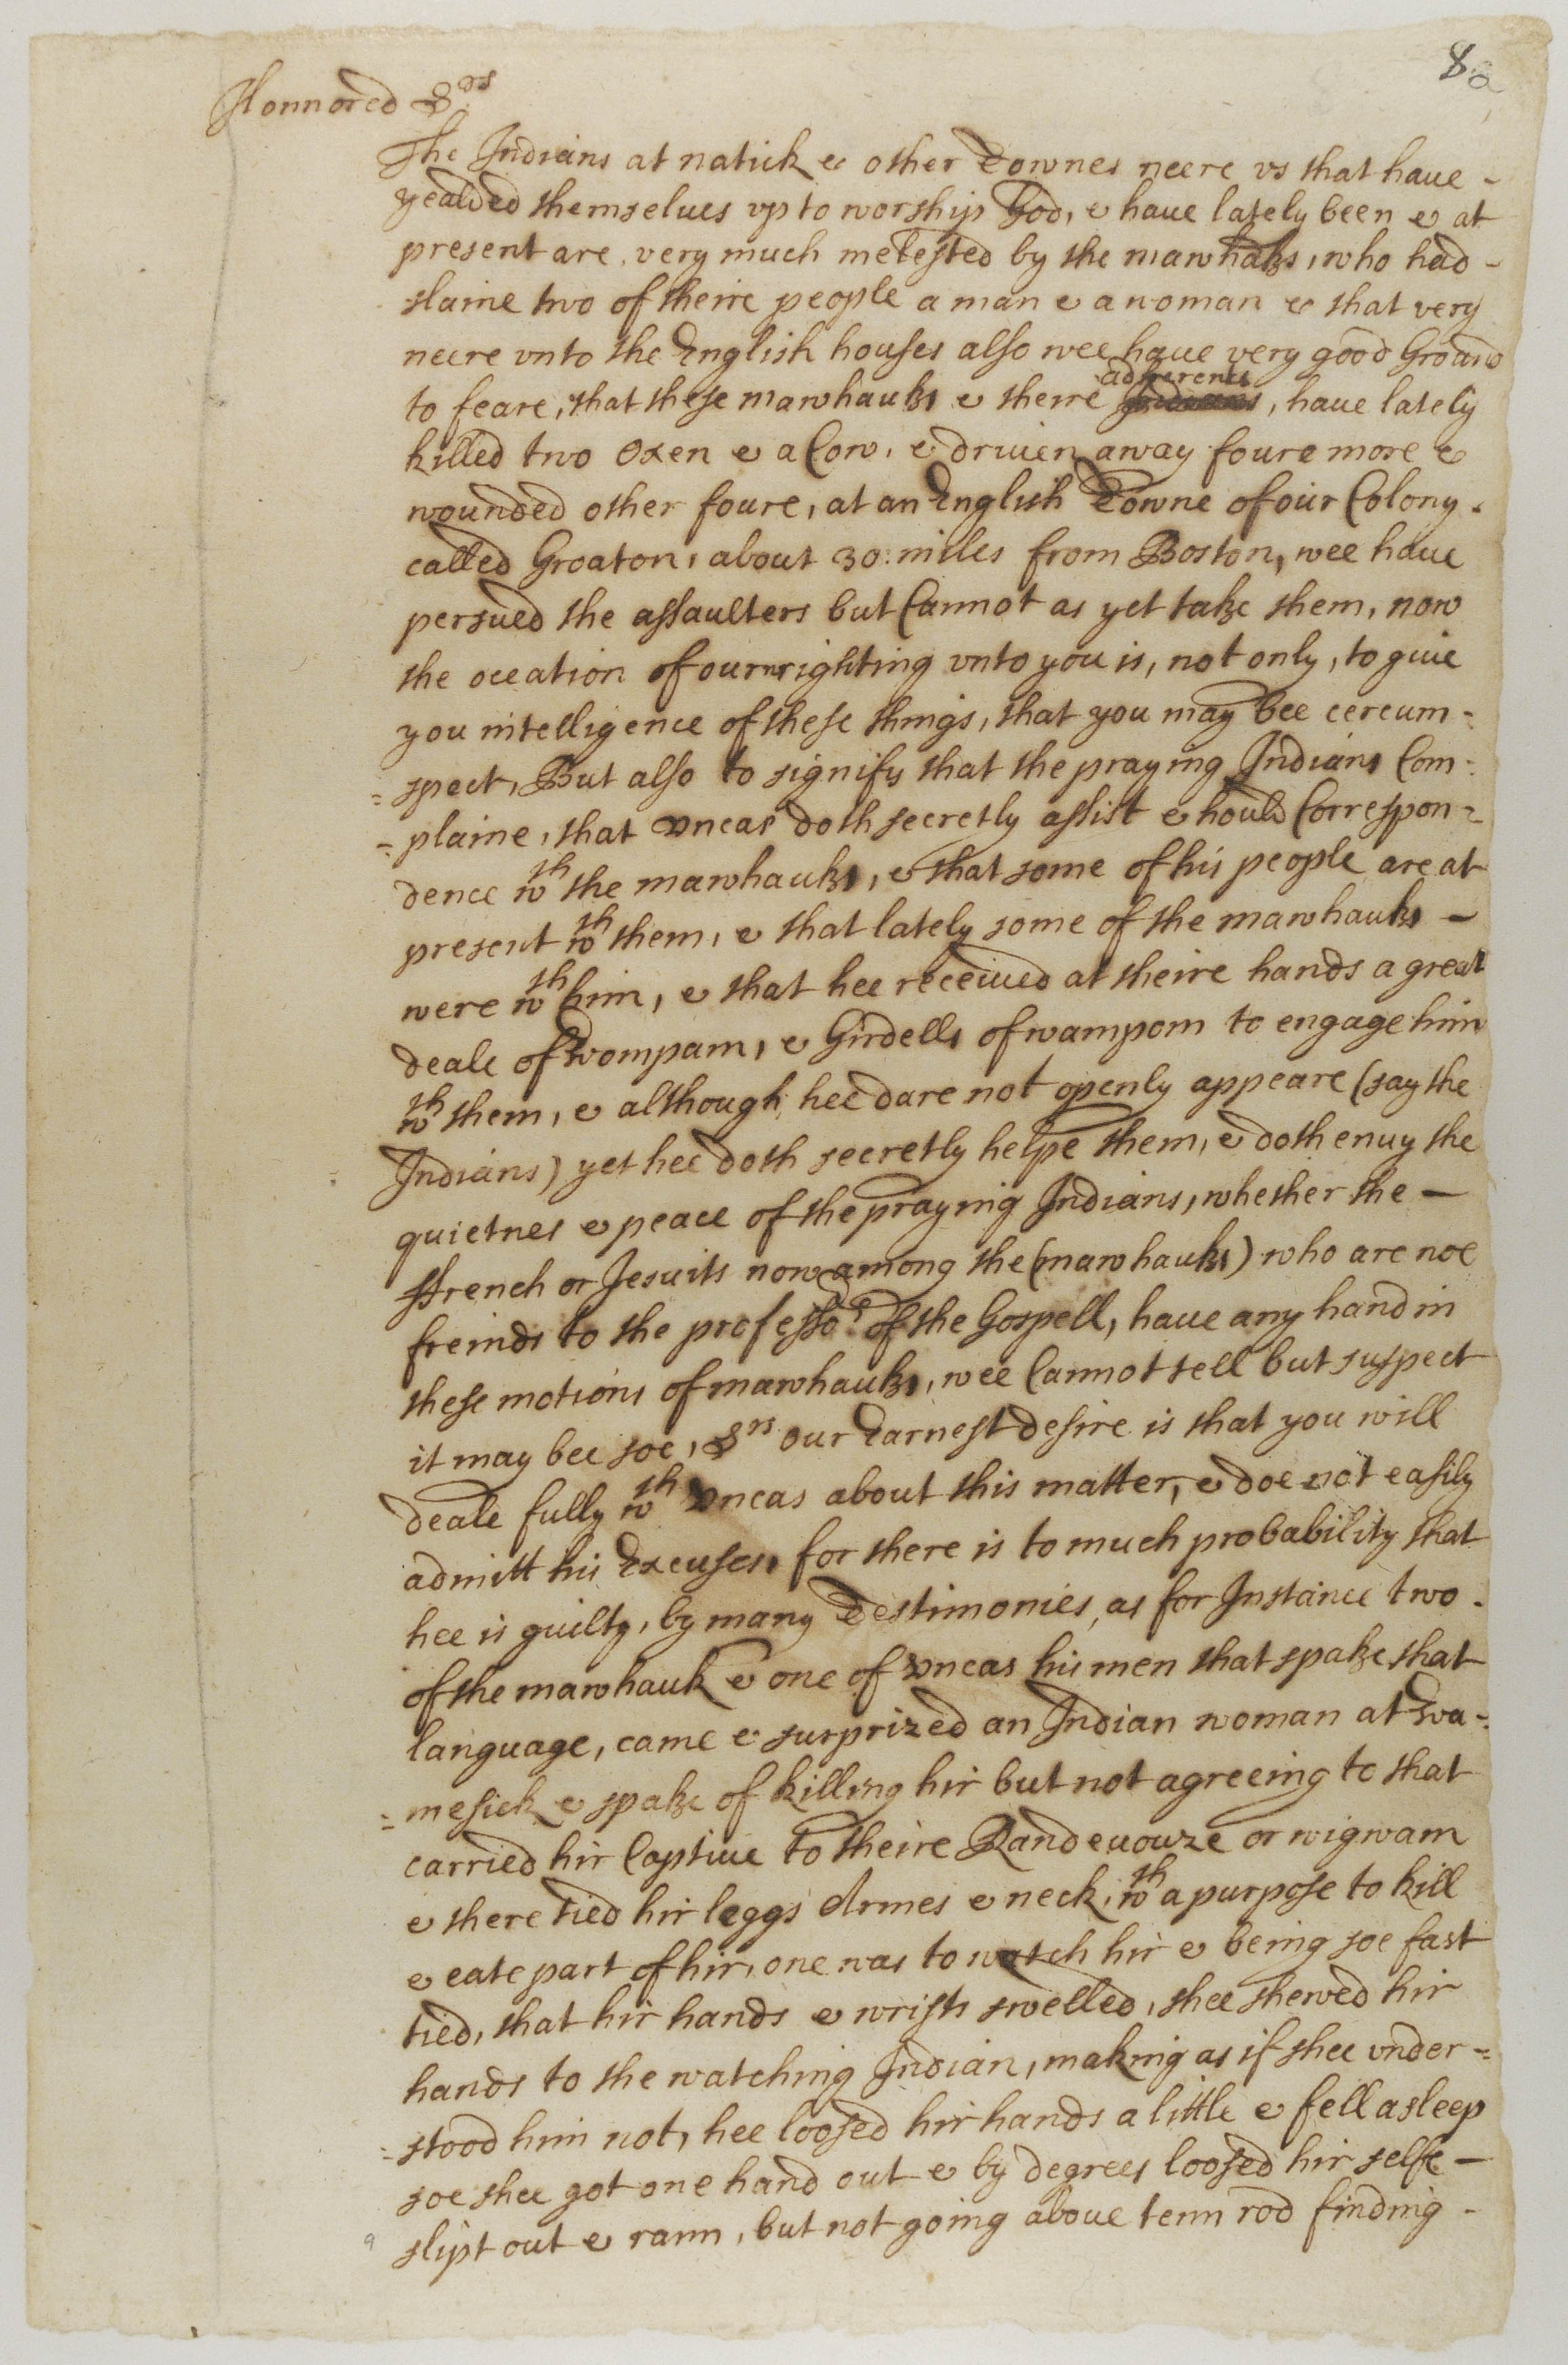 82
Honnored Srs
The Indians at natick & other Townes neere vs that haue -
yealded themselues vp to worship God, & haue lately been & at
present are very much molested by the mawhaks, who had -
slaine two of theire people a man & a woman & that very
neere vnto the English houses also wee haue very good Ground
adherents
to feare, that these mawhauks & theire Indians, haue lately
killed two Oxen & a Cow, & driuen away foure more &
wounded other foure, at an English Towne of our Colony.
called Groaton, about 30: miles from Boston, wee haue
persued the assaulters but Cannot as yet take them, now
the occation of our wrighting vnto you is, not only, to giue
you intelligence of these things, that you may bee cercum=
=spect, But also to signify that the praying Indians Com=
=plaine, that Vncas doth secretly assist & hould Correspon=
dence wth the mawhauks, & that some of his people are at
present wth them, & that lately some of the mawhauks -
were wth him, & that hee receiued at theire hands a great
deale of wompam, & Girdells of wampom to engage him
wth them, & although hee dare not openly appeare (say the
Indians) yet hee doth secretly helpe them, & doth enuy the
quietnes & peace of the praying Indians, whether the -
ffrench or Jesuits now among the (mawhauks) who are noe
freinds to the professors of the Gospell, haue any hand in
these motions of mawhauks, wee Cannot tell but suspect
it may bee soe, Srs our Earnest desire is that you will
deale fully wth Vncas about this matter, & doe not easily
admitt his Excuses, for there is to much probability that
hee is guilty, by many Testimonies, as for Instance two.
of the mawhauk & one of Vncas his men that spake that
language, came & surprized an Indian woman at Wa=
=mesick & spake of killing hir but not agreeing to that
carried hir Captiue to theire Randeuouze or wigwam
& there tied hir leggs Armes & neck, wth a purpose to kill
& eate part of hir, one was to watch hir & being soe fast
tied, that hir hands & wrists swelled, shee shewed hir
hands to the watching Indian, making as if shee vnder=
=stood him not, hee loosed hir hands a little & fell asleep
soe shee got one hand out & by degrees loosed hir selfe -
slipt out & rann, but not going aboue tenn rod finding -